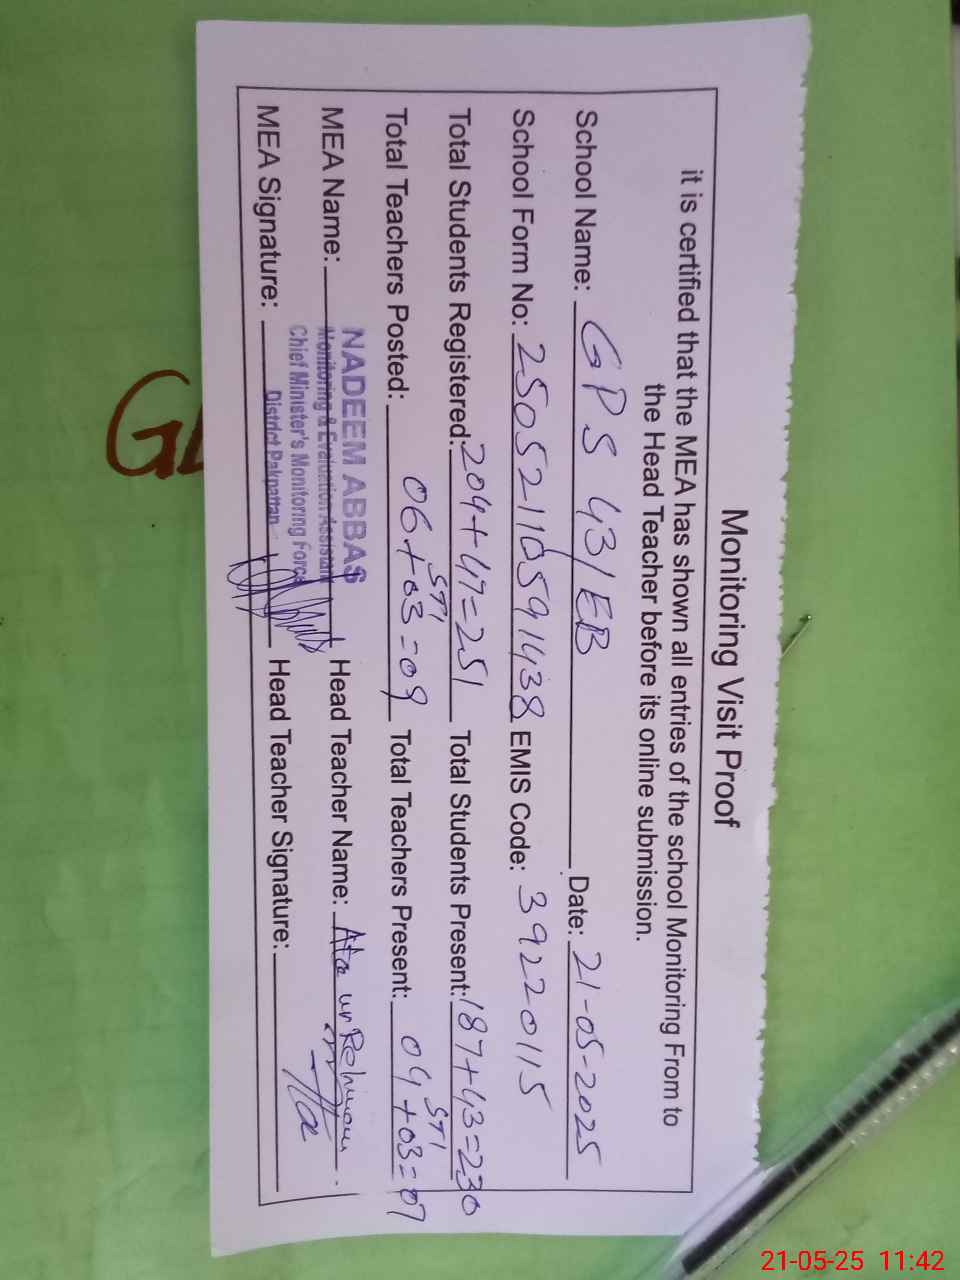 Monitoring Visit Proof
it is certified that the MEA has shown all entries of the school Monitoring From to
the Head Teacher before its online submission.
School Name: GPS 43/EB Date: 21-05-2025
School Form No: 2505211059 1438 EMIS Code: 39220115
Total Students Registered: 204+47=251 Total Students Present: 187+43=230
STI STI
Total Teachers Posted: 06+03=09 Total Teachers Present: 04+03=07
NADEEM ABBAS
MEA Name: Monitoring & Evaluation Assistant Head Teacher Name: Ata ur Rehman
Chief Minister's Monitoring Force
MEA Signature: District Pakpattan Head Teacher Signature: Ata
21-05-25 11:42